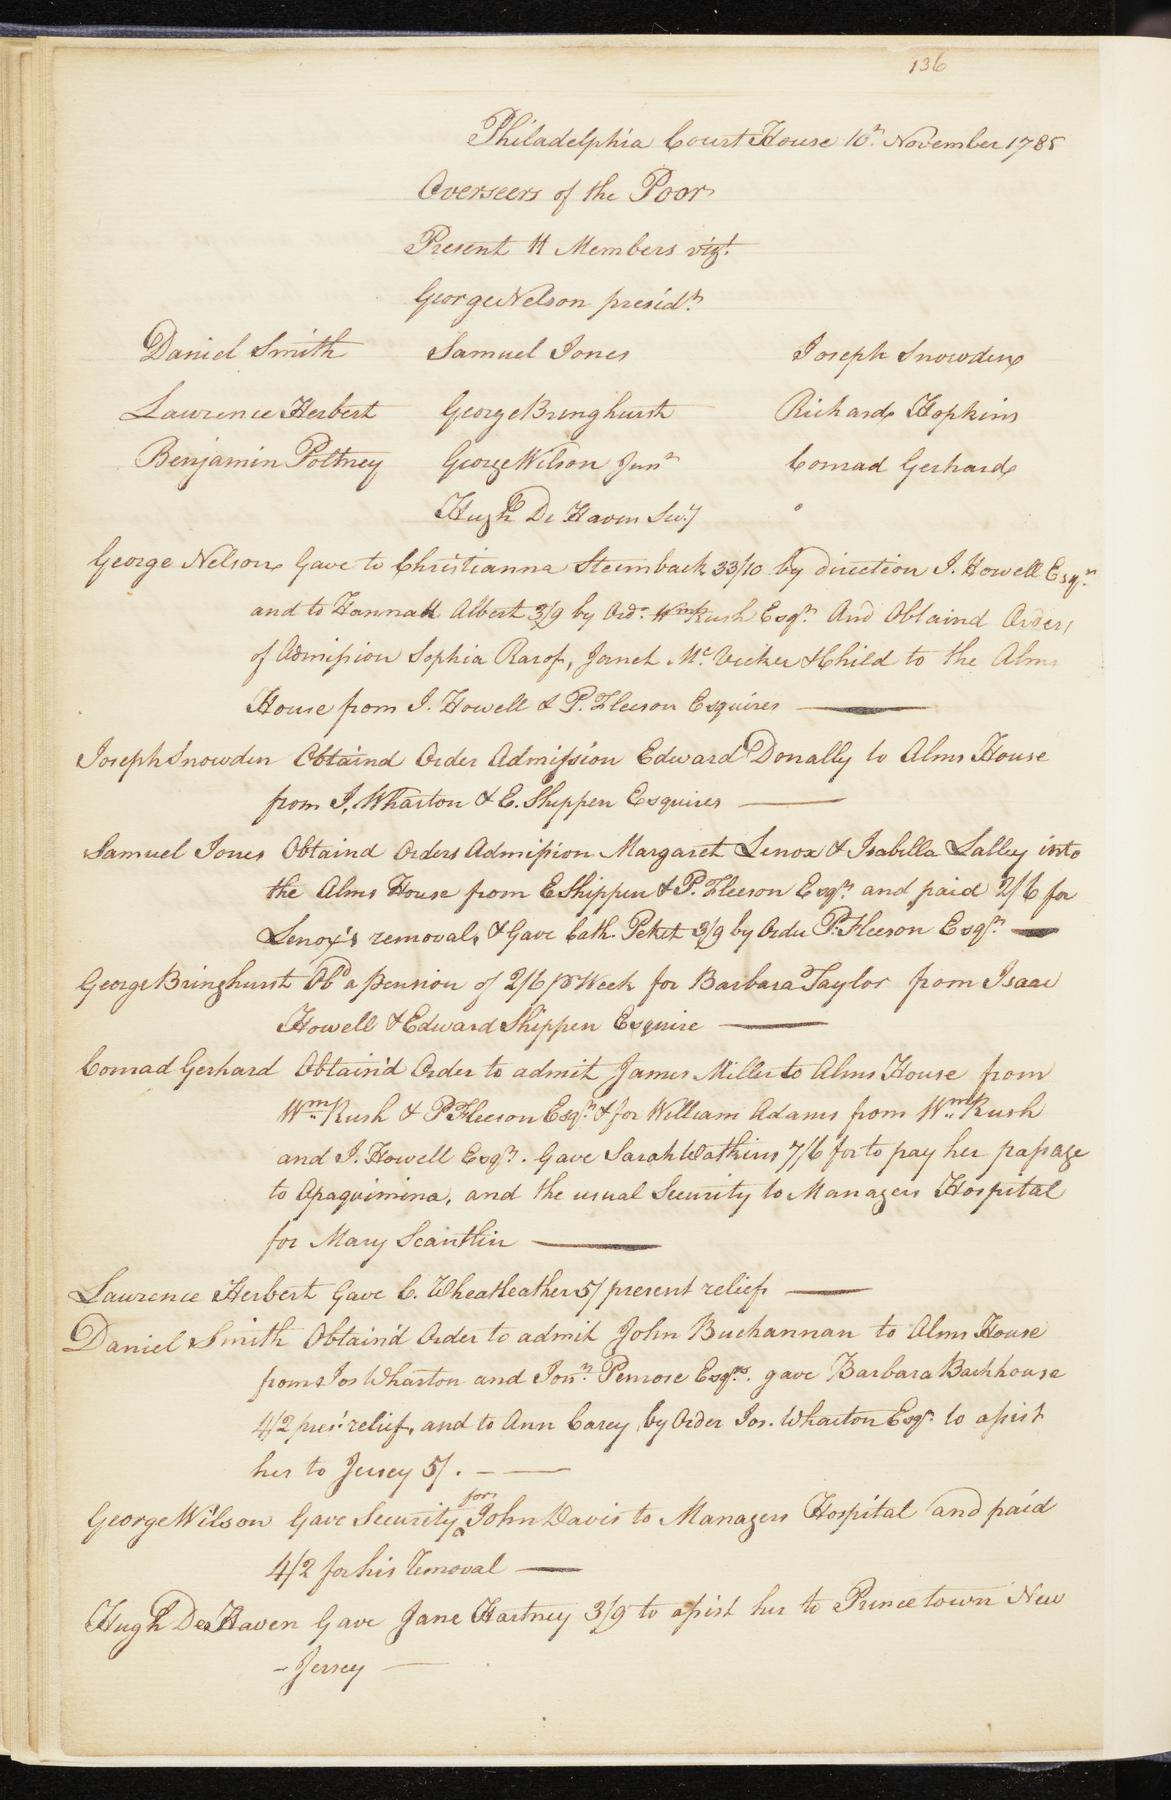 136
Philadelphia Court House 10th November 1785
Overseers of the Poor
Present 11 Members vizt.
George Nelson presidt.
Daniel Smith Samuel Jones Joseph Snowden
Lawrence Herbert George Bringhurst Richard Hopkins
Benjamin Poltney George Wilson Junr Conrad Gerhard
Hugh De Haven Secy
George Nelson Gave to Christianna Steinback 33/10 by direction I. Howell Esqr.
and to Hannah Albert 3/9 by Ordr. Wm Rush Esqr. And Obtaind Orders
of Admission Sophia Jannet Mc.Vicker & Child to the Alms
House from I. Howell & P. Fleeson Esquires
Joseph Snowden Obtaind Order Admission Edward Donally to Alms House
from J. Wharton & E. Shippen Esquires
Samuel Jones Obtaind Orders Admission Margaret Lenox & Isabella Lalley into
the Alms House from E Shippen & P. Fleeson Esqrs. and paid 2/6 for
Lenox's removal, & Gave Cath. Peket 3/9 by Order P. Fleeson Esqr.
George Bringhurst Obd a pension of 2/6 pr Week for Barbara Taylor from Isaac
Howell & Edward Shippen Esquire
Conrad Gerhard Obtain'd Order to admit James Miller to Alms House from
Wm. Rush & P Fleeson Esqrs. & for William Adams from Wm. Rush
and I. Howell Esqrs. Gave Sarah Wathins 7/6 for to pay her passage
to Apaquimina, and the usual Security to Managers Hospital
for Mary Scanthin
Lawrence Herbert Gave C. Wheatleather 5/ present relief
Daniel Smith Obtain'd Order to admit John Buchannan to Alms House
from Jos Wharton and Jonn. Penrose Esqrs. gave Barbara Backhouse
4/2 pres.t relief, and to Ann Carey by Order Jos. Wharton Esqr. to assist
her to Jersey 5/.
George Wilson Gave Security for John Davis to Managers Hospital and paid
4/2 for his removal
Hugh De Haven Gave Jane Hartney 3/9 to assist her to Princetown New
-Jersey